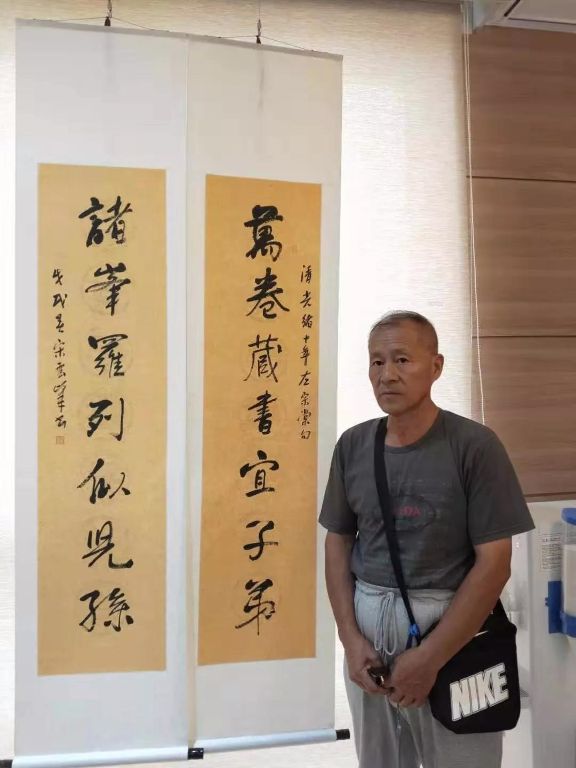 清光緒十年左宗棠句
萬卷藏書宜子弟
諸峯羅列似児孫
戊戌夏宋雲峯书
NIKE